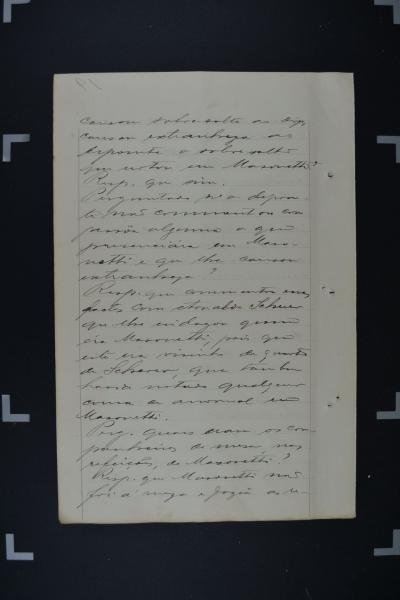 causou sobresalto ao
causou extranheza ao
depoente o sobresalto
que notou em Mazonetti?
Resp. que sim.
Perguntado se o depoen-
te não commentou com
pessôa alguma o que
presenciára em Mazo-
netti e que lhe causou
extranheza?
Resp. que commentou esses
factos com Scherer
que lhe indagou quem
era Mazonetti, pois que
este era visinho de quarto
de Scherer, que tambem
havia notado qualquer
cousa de anormal em
Mazonetti.
Perg. quaes eram os com-
panheiros de mesa, nas
refeições, de Mazonetti?
Resp. que Mazonetti não
foi á mesa e fazia as re-